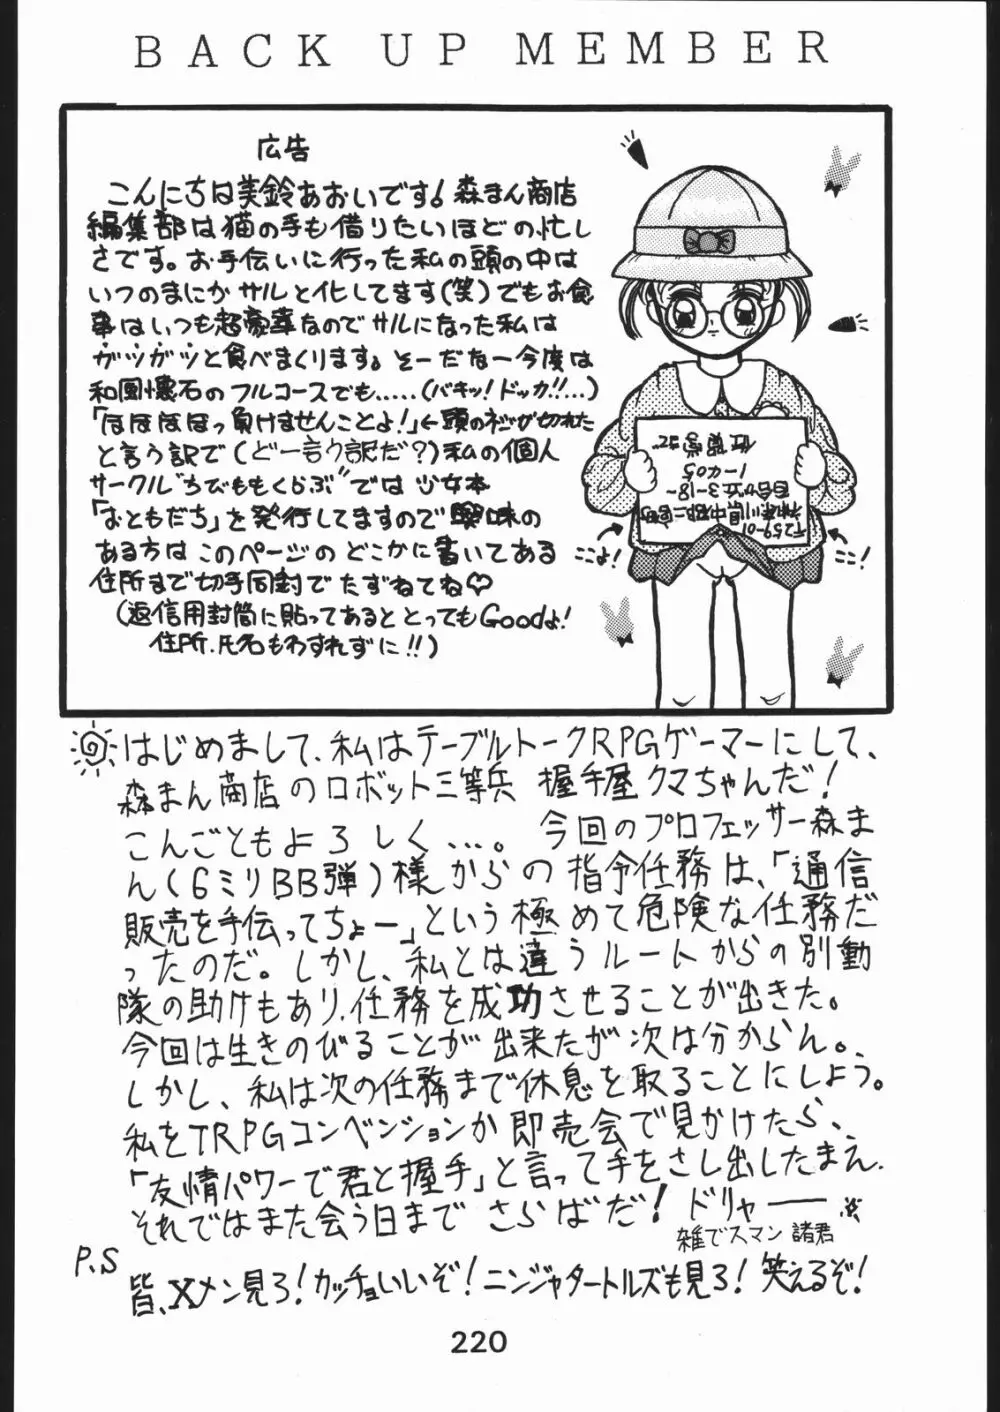 BACK UP MEMBER
広告
こんにちは美鈴あおいです！森まん商店
編集部は猫の手も借りたいほどの忙し
さです。お手伝いに行った私の頭の中は
いつのまにかサルと化してます(笑)でもお食
事はいつも超豪華なのでサルになった私は
ガツガツと食べまくります。そーだなー今度は
和風懐石のフルコースでも.....(バキッ!ドッカ!!...)
「ほほほほっ負けませんことよ！」←頭のネジが切れた
と言う訳で(どー言う訳だ?)私の個人
サークル"ちびももくらぶ"では少女本
「おともだち」を発行してますので興味の
ある方はこのページのどこかに書いてある
住所まで切手同封でたずねてね♡
(返信用封筒に貼ってあるととってもGoodよ!
住所、氏名もわすれずに!!)
ここよ!
ここ!
はじめまして、私はテーブルトークRPGゲーマーにして、
森まん商店のロボット三等兵 握手屋クマちゃんだ!
こんごともよろしく...。 今回のプロフェッサー森ま
ん(6ミリBB弾)様からの指令任務は、「通信
販売を手伝ってちょー」という極めて危険な任務だ
ったのだ。しかし、私とは違うルートからの別動
隊の助けもあり、任務を成功させることが出きた。
今回は生きのびることが出来たが次は分からん。
しかし、私は次の任務まで休息を取ることにしよう。
私をTRPGコンベンションか即売会で見かけたら、
「友情パワーで君と握手」と言って手をさし出したまえ.
それではまた会う日まで さらばだ! ドリャー
雑でスマン 諸君
P.S
皆、Xメン見ろ!カッチョいいぞ!ニンジャタートルズも見ろ!笑えるぞ!
220